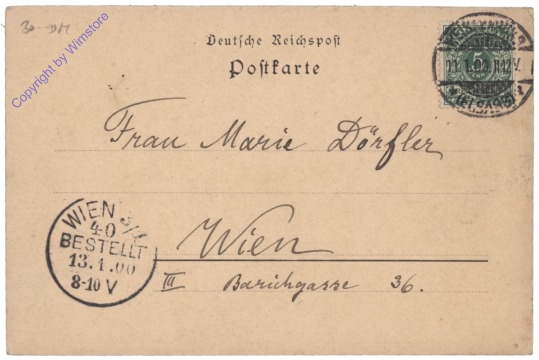 30.- DM
Copyright by Wimstore
Deutsche Reichspost
Postkarte
11.1.00
(ELSASS)
Frau Marie Dörfler
Wien
III Barichgasse 36.
WIEN 3/1
40
BESTELLT
13.1.00
8-10 V